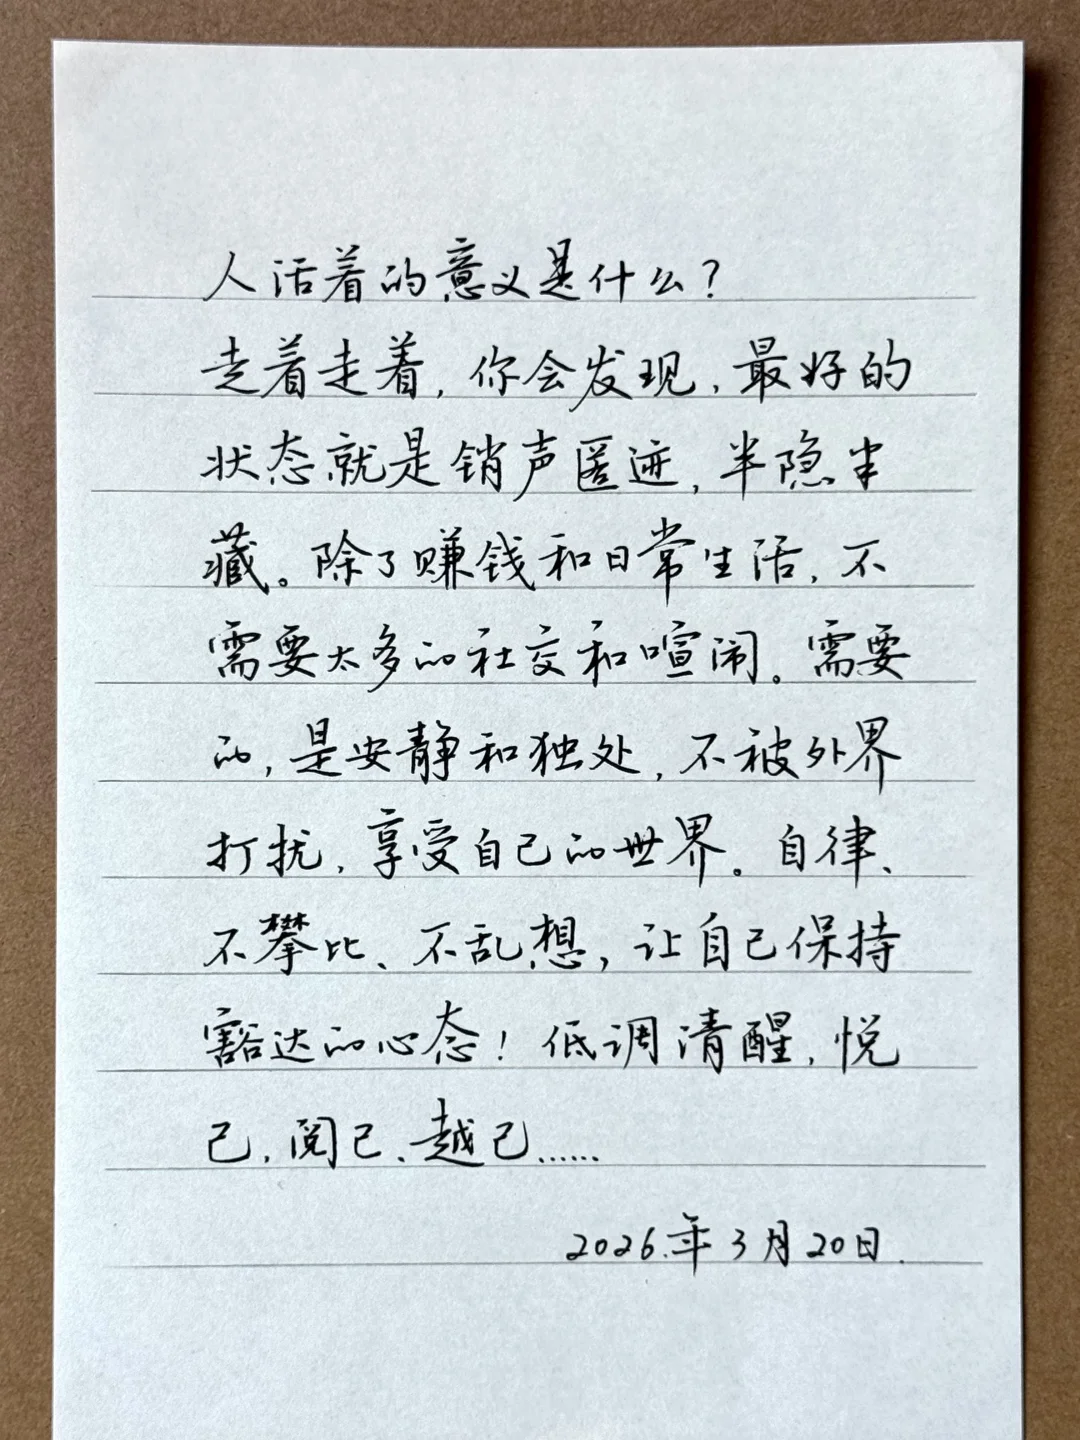 人活着的意义是什么?
走着走着,你会发现,最好的
状态就是销声匿迹,半隐半
藏。除了赚钱和日常生活,不
需要太多的社交和喧闹。需要
的,是安静和独处,不被外界
打扰,享受自己的世界。自律、
不攀比、不乱想,让自己保持
豁达的心态!低调清醒,悦
己,阅己、越己……
2026.年3月20日.